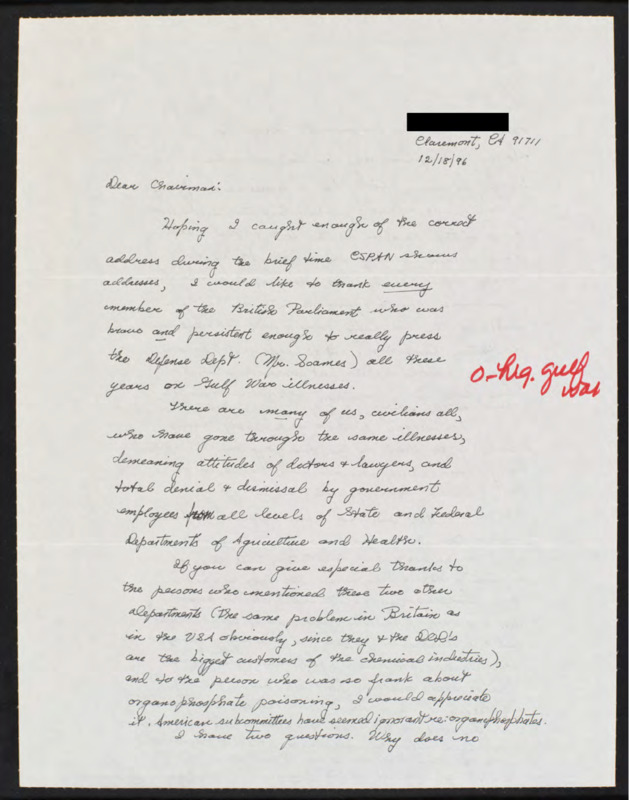 Claremont, CA 91711
12/18/96
Dear Chairman:
Hoping I caught enough of the correct
address during the brief time CSPAN shows
addresses, I would like to thank every
member of the British Parliament who was
brave and persistent enough to really press
the Defense Dept. (Mr. Soames) all these
years on Gulf War illnesses.
There are many of us, civilians all,
who have gone through the same illnesses,
demeaning attitudes of doctors & lawyers, and
total denial & dismissal by government
employees from all levels of State and Federal
Departments of Agriculture and Health.
If you can give especial thanks to
the persons who mentioned these two other
departments (the same problem in Britain as
in the USA obviously, since they & the DOD's
are the biggest customers of the chemical industries),
and to the person who was so frank about
organophosphate poisoning, I would appreciate
it. American subcommittees have seemed ignorant re: organophosphates.
I have two questions. Why does no
gulf
war